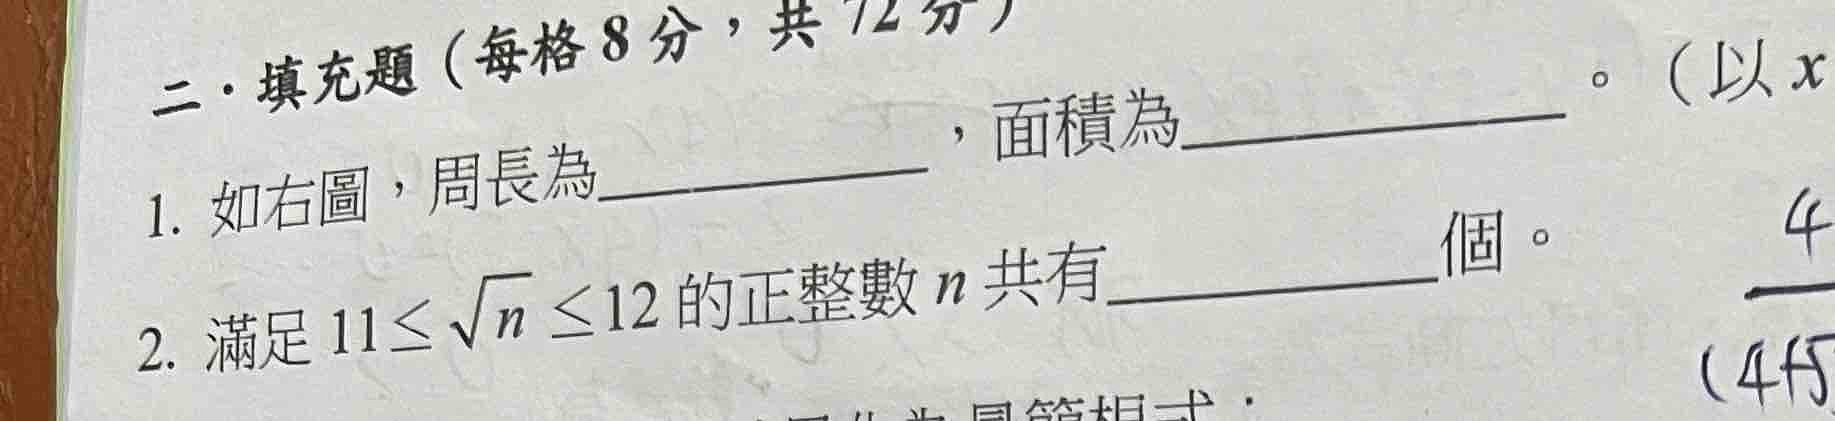 二·填充題(每格8分,共72分)
1. 如右圖,周長為________,面積為________。(以x
2. 滿足 11≤√n≤12 的正整數 n 共有________個。
4
(4+5
最簡根式: